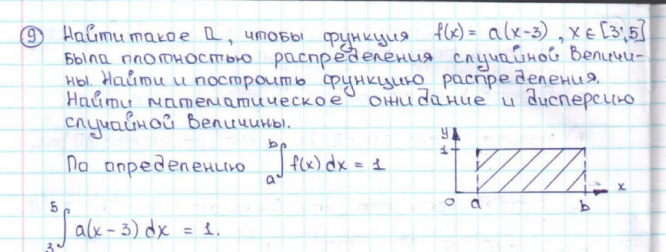 ⑨ Найти такое a, чтобы функция f(x) = a(x-3), x∈[3;5]
была плотностью распределения случайной величи-
ны. Найти и построить функцию распределения.
Найти математическое ожидание и дисперсию
случайной величины.
По определению ∫ₐᵇ f(x) dx = 1
y
1
0 a b x
∫₃⁵ a(x-3) dx = 1.